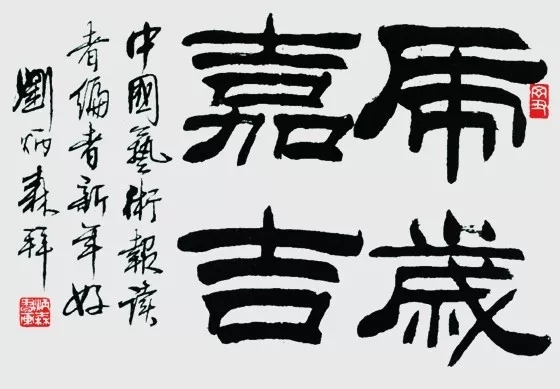 虎歲
嘉吉
中國藝術報读
者編者新年好
劉炳森拜